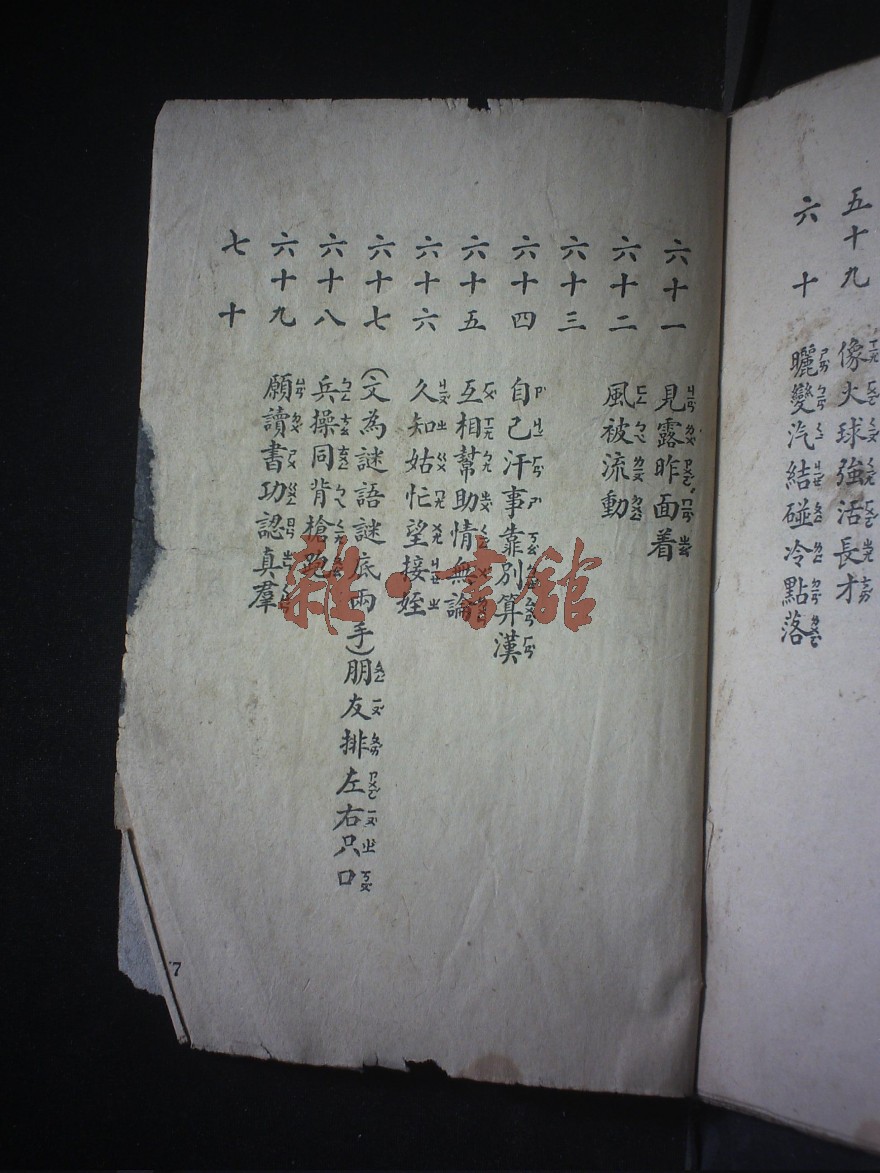 五十九 像火球強活長才
六十 曬變汽結碰冷點落
六十一 見露昨面着
六十二 風被流動
六十三
六十四 自己汗事靠別算漢
六十五 互相幫助情無論
六十六 久知姑忙望接姪
六十七 (文為謎語謎底兩手)朋友排左右只口
六十八 兵操同背槍跑
六十九 願讀書功認真羣
七十
7
雜·書館